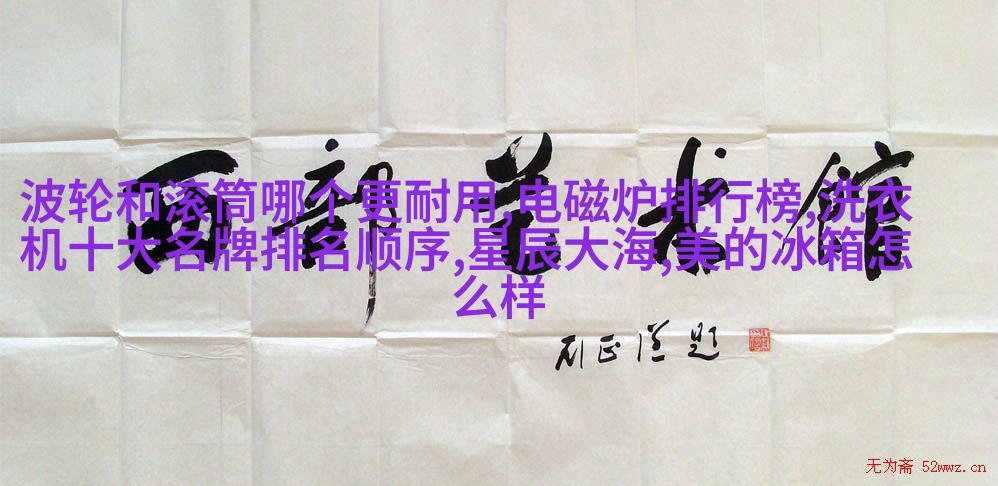 西部美术馆
波轮和滚筒哪个更耐用,电磁炉排行榜,洗衣
机十大名牌排名顺序,星辰大海,美的冰箱怎
么样
刘正谦题
无为斋 52wwz.cn